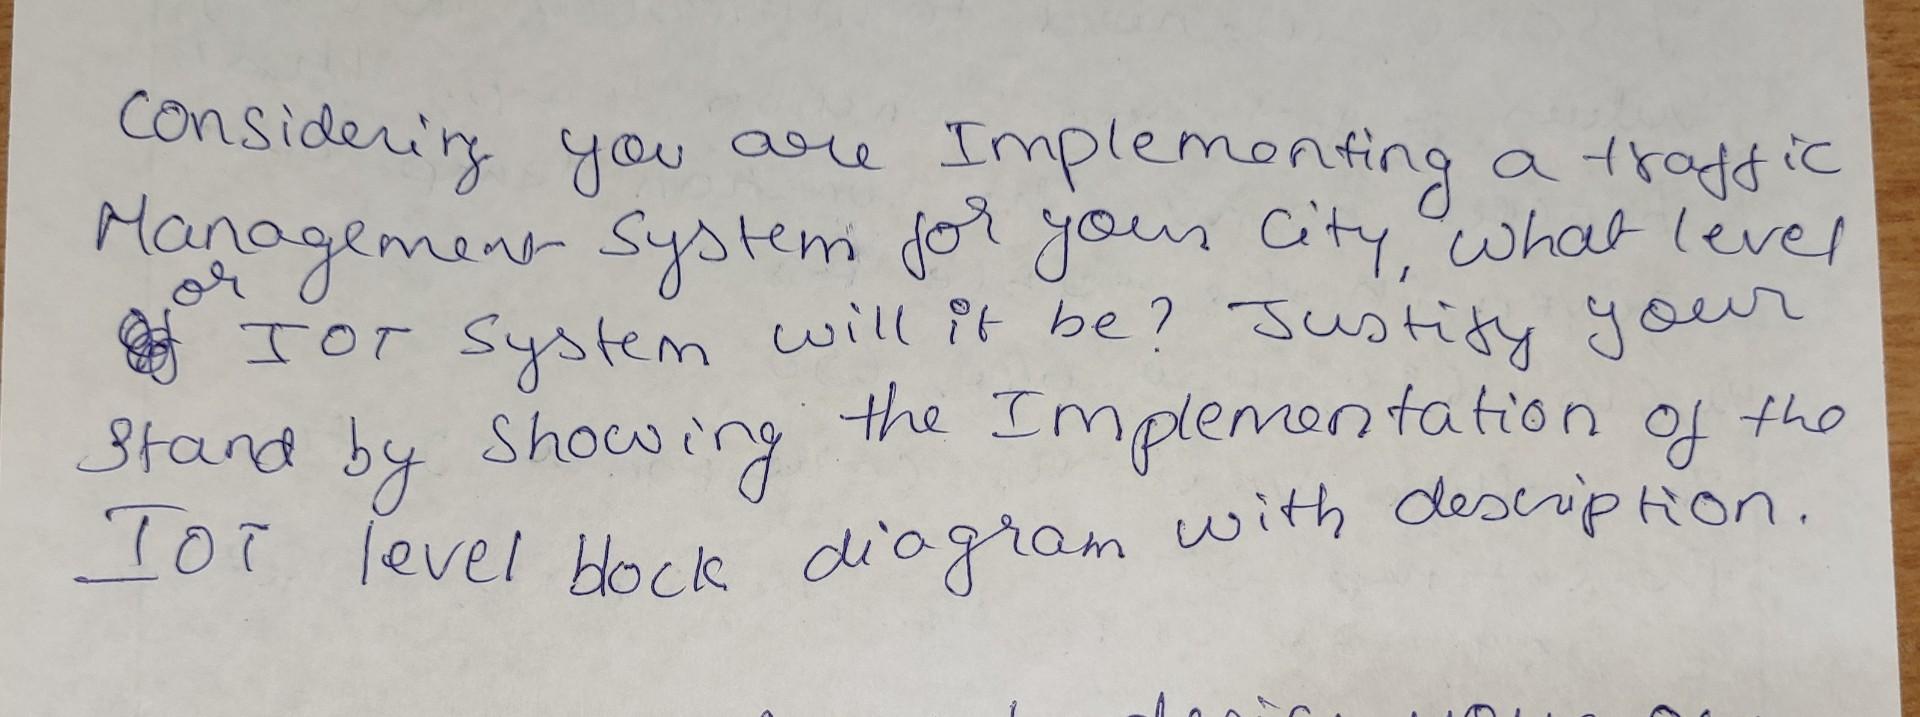 Considering you are Implementing a traffic
Management System for your City, what level
or IOT System will it be? Justify your
Stand by Showing the Implementation of the
IOT level block diagram with description.